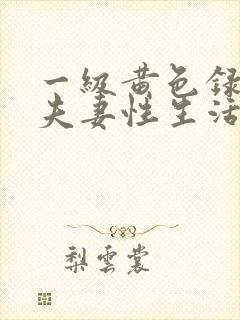 一級黄色録
夫妻性生活
梨雲裳